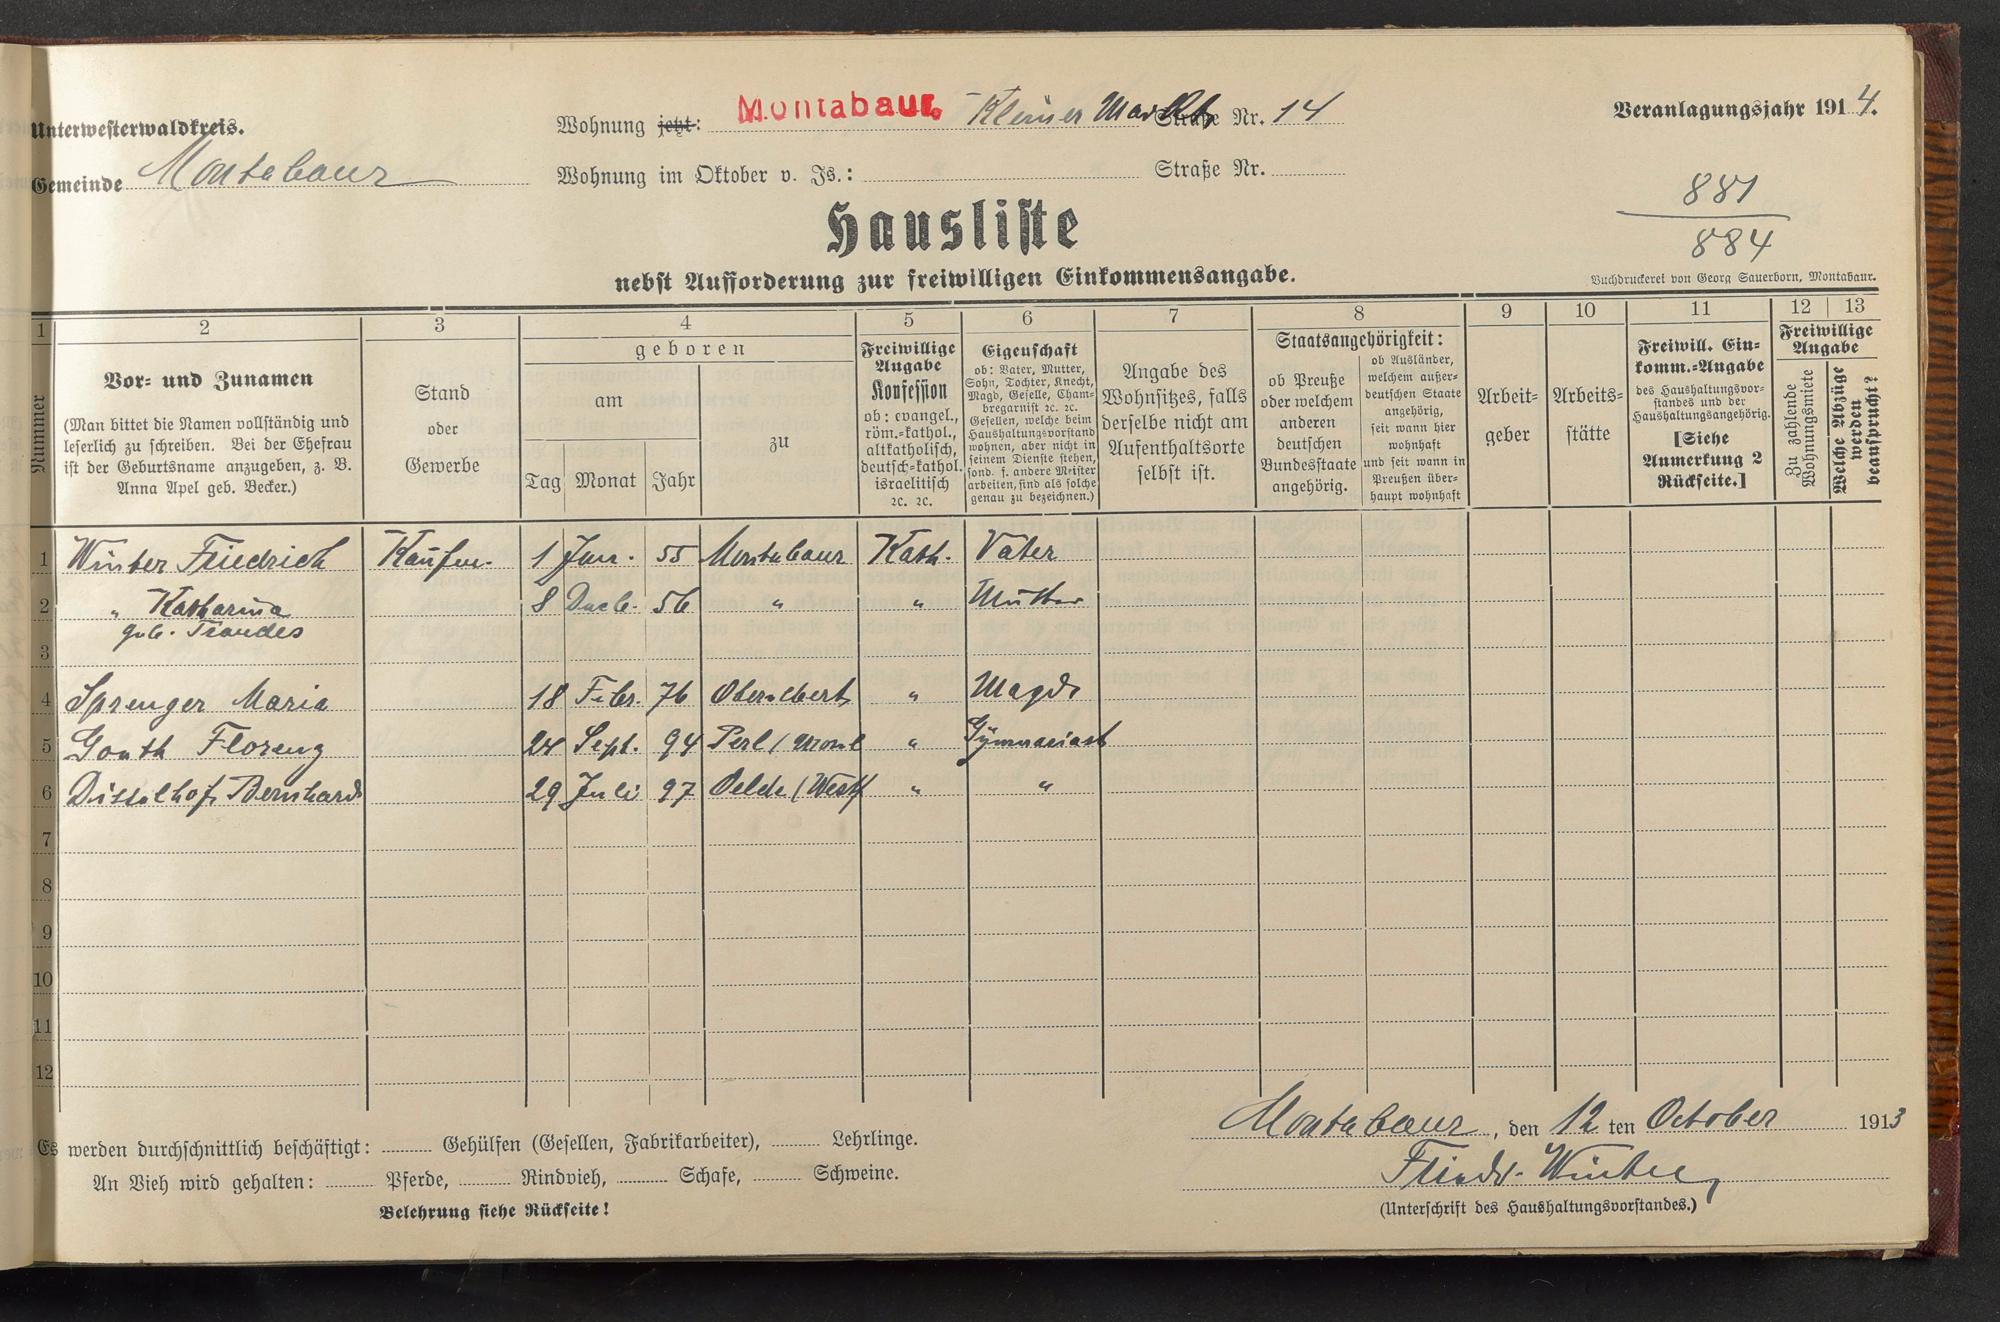 Unterwesterwaldkreis.
Gemeinde Montabaur
Wohnung jetzt: Montabaur. Kleiner Markt Straße Nr. 14
Wohnung im Oktober v. Js.: Straße Nr.
Veranlagungsjahr 1914.
881
884
Hausliste
nebst Aufforderung zur freiwilligen Einkommensangabe.
Buchdruckerei von Georg Sauerborn, Montabaur.
1 2 3 4 5 6 7 8 9 10 11 12 13
Nummer
Vor- und Zunamen
(Man bittet die Namen vollständig und
leserlich zu schreiben. Bei der Ehefrau
ist der Geburtsname anzugeben, z. B.
Anna Apel geb. Becker.)
Stand
oder
Gewerbe
geboren
am
zu
Tag Monat Jahr
Freiwillige
Angabe
Konfession
ob: evangel.,
röm.-kathol.,
altkatholisch,
deutsch-kathol.
israelitisch
ꝛc. ꝛc.
Eigenschaft
ob: Vater, Mutter,
Sohn, Tochter, Knecht,
Magd, Geselle, Cham-
bregarnist ꝛc. ꝛc.
Gesellen, welche beim
Haushaltungsvorstand
wohnen, aber nicht in
seinem Dienste stehen,
sond. f. andere Meister
arbeiten, sind als solche
genau zu bezeichnen.)
Angabe des
Wohnsitzes, falls
derselbe nicht am
Aufenthaltsorte
selbst ist.
Staatsangehörigkeit:
ob Preuße
oder welchem
anderen
deutschen
Bundesstaate
angehörig.
ob Ausländer,
welchem außer-
deutschen Staate
angehörig,
seit wann hier
wohnhaft
und seit wann in
Preußen über-
haupt wohnhaft
Arbeit-
geber
Arbeits-
stätte
Freiwill. Ein-
komm.-Angabe
des Haushaltungsvor-
standes und der
Haushaltungsangehörig.
[Siehe
Anmerkung 2
Rückseite.]
Freiwillige
Angabe
Zu zahlende
Wohnungsmiete
Welche Abzüge
werden
beansprucht?
1 Winter Friedrich Kaufm. 1 Jan. 55 Montabaur Kath. Vater
2 " Katharina 8 Dezb. 56 " " Mutter
geb. Frandes
3
4 Sprenger Maria 18 Febr. 76 Oberelbert " Magd
5 Gonth Florenz 24 Sept. 94 Perl / Mosel " Gymnasiast
6 Disselhof Bernhard 29 Juli 97 Oelde / Westf " "
7
8
9
10
11
12
Es werden durchschnittlich beschäftigt: Gehülfen (Gesellen, Fabrikarbeiter), Lehrlinge.
An Vieh wird gehalten: Pferde, Rindvieh, Schafe, Schweine.
Belehrung siehe Rückseite!
Montabaur, den 12 ten October 1913
Friedr. Winter
(Unterschrift des Haushaltungsvorstandes.)